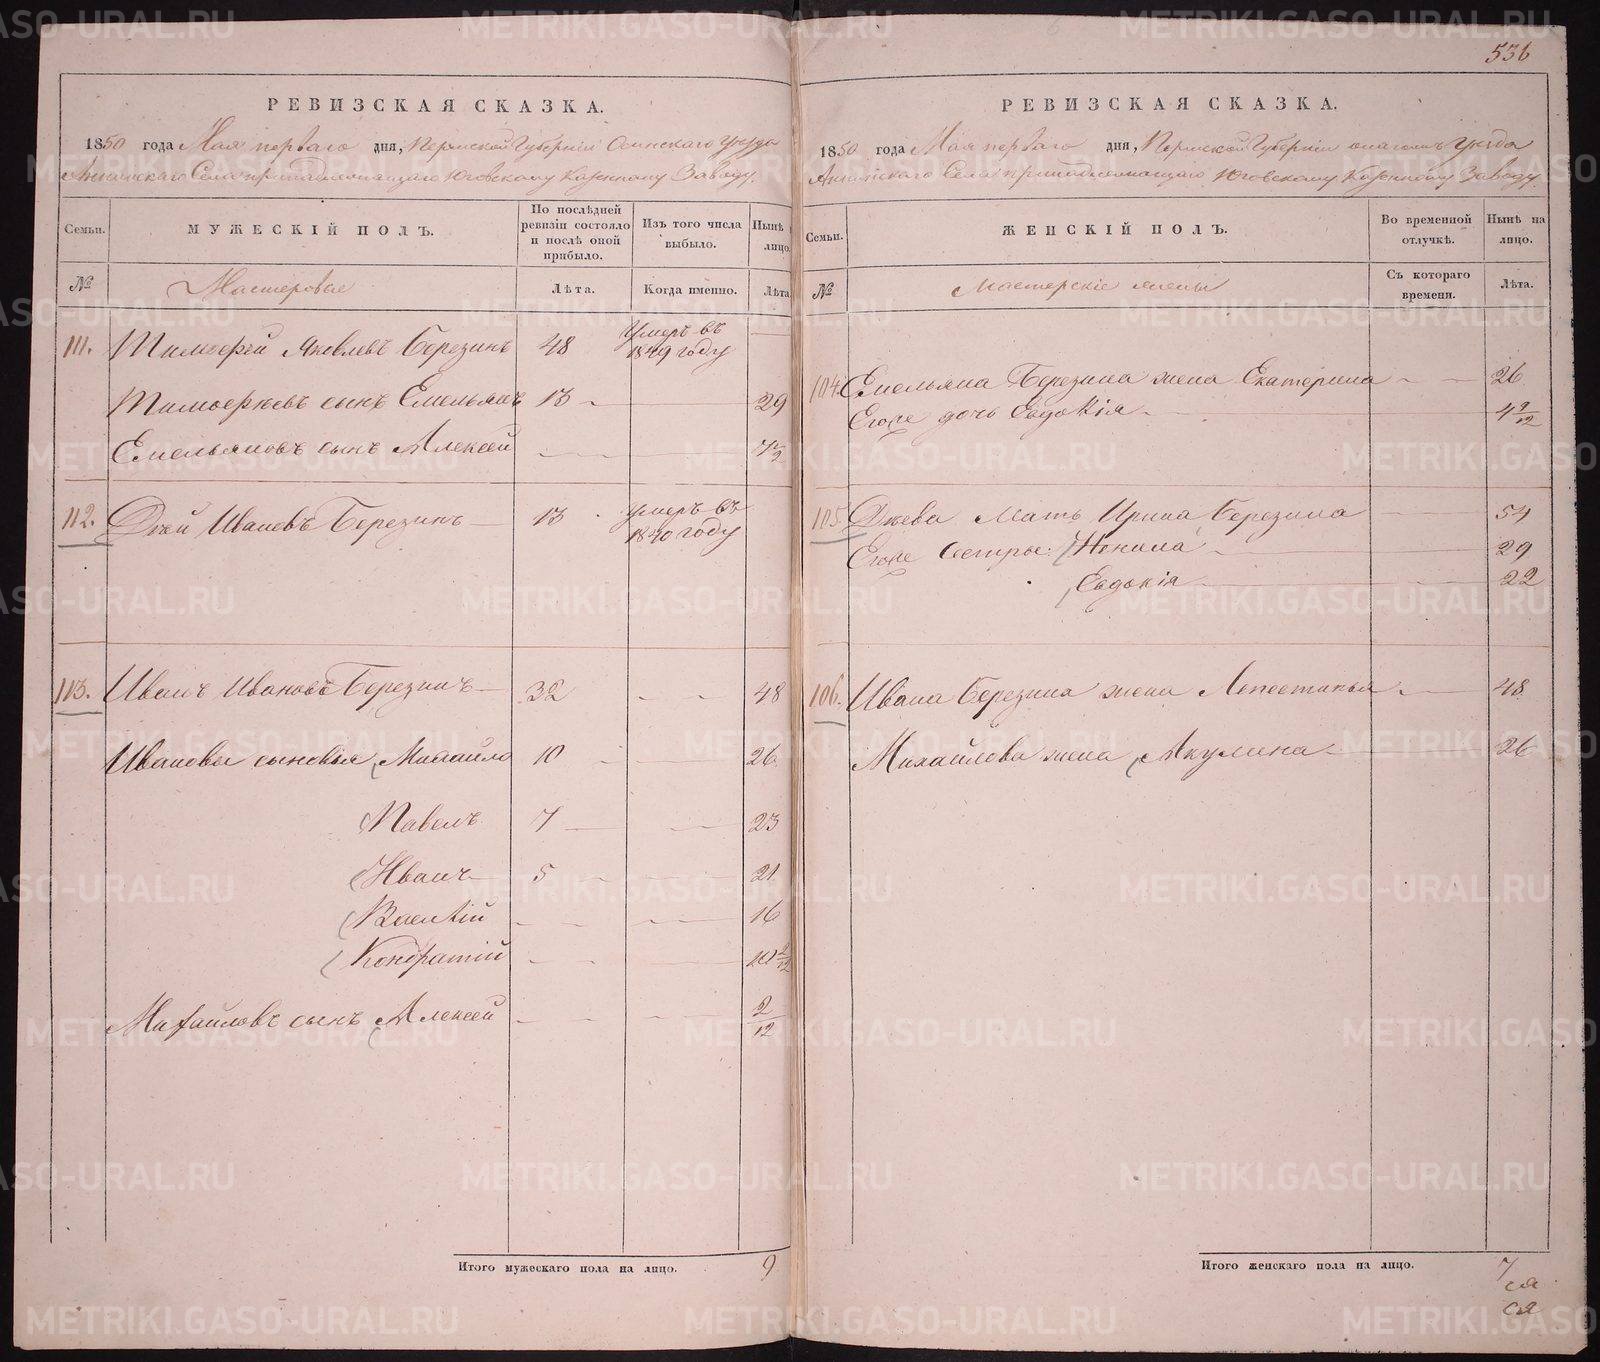 536
РЕВИЗСКАЯ СКАЗКА.
1850 года Мая перваго дня, Пермской Губернiи Осинскаго Уезда
Аннинскаго Села принадлежащаго Юговскому Казенному Заводу.
Семьи.
МУЖЕСКIЙ ПОЛЪ.
По послѣдней ревизiи состояло и послѣ оной прибыло.
Изъ того числа выбыло.
Нынѣ на лицо.
№
Мастеровые
Лѣта.
Когда именно.
Лѣта
111. Тимофей Яковлевъ Березинъ 48 Умеръ въ 1849 году
Тимофеевъ сынъ Емельянъ 13 29
Емельяновъ сынъ Алексей
112. Иванъ Березинъ 13 умеръ въ 1840 году
113. Иванъ Ивановъ Березинъ 32 48
Ивановы сыновья Михайло 10 26
Павелъ 7 23
Иванъ 5 21
16
Кондратiй 10
Михайловъ сынъ Алексей 2/12
Итого мужескаго пола на лицо. 9
РЕВИЗСКАЯ СКАЗКА.
1850 года Мая перваго дня, Пермской Губернiи Уезда
Аннинскаго Села принадлежащаго Юговскому Казенному Заводу.
Семьи.
ЖЕНСКIЙ ПОЛЪ.
Во временной отлучкѣ.
Нынѣ на лицо.
№
Мастерскiе жены
Съ котораго времени.
Лѣта.
104. Емельяна Березина жена Екатерина 26
Егоже дочь Евдокiя 4 9/12
105 Мать Ирина Березина 54
Егоже Сестры: Ненила 29
Евдокiя 22
106. Ивана Березина жена 48
Михайлова жена Акулина 26
Итого женскаго пола на лицо. 7
METRIKI.GASO-URAL.RU